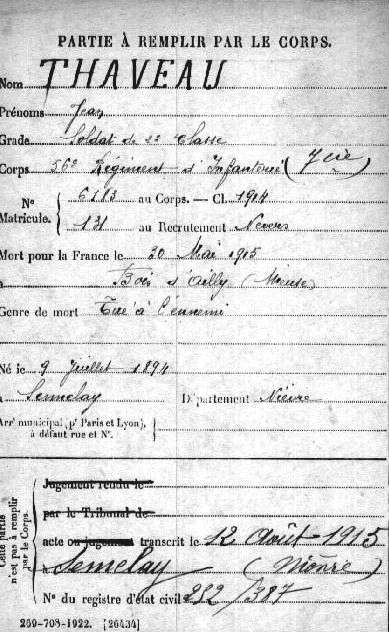 PARTIE À REMPLIR PAR LE CORPS.
Nom THAVEAU
Prénoms Jean
Grade Soldat de 2e Classe
Corps 56e Régiment d'Infanterie
N° Matricule. 6183 au Corps. — Cl. 1914
131 au Recrutement Nevers
Mort pour la France le 30 Mai 1915
à Bois d'Ailly (Meuse)
Genre de mort Tué à l'ennemi
Né le 9 Juillet 1894
à Semelay Département Nièvre
Arrt municipal (pr Paris et Lyon), à défaut rue et N°.
Cette partie n'est pas à remplir par le Corps.
Jugement rendu le
par le Tribunal de
acte ou jugement transcrit le 12 Août 1915
à Semelay (Nièvre)
N° du registre d'état civil 232/387
269-708-1922. [26434]